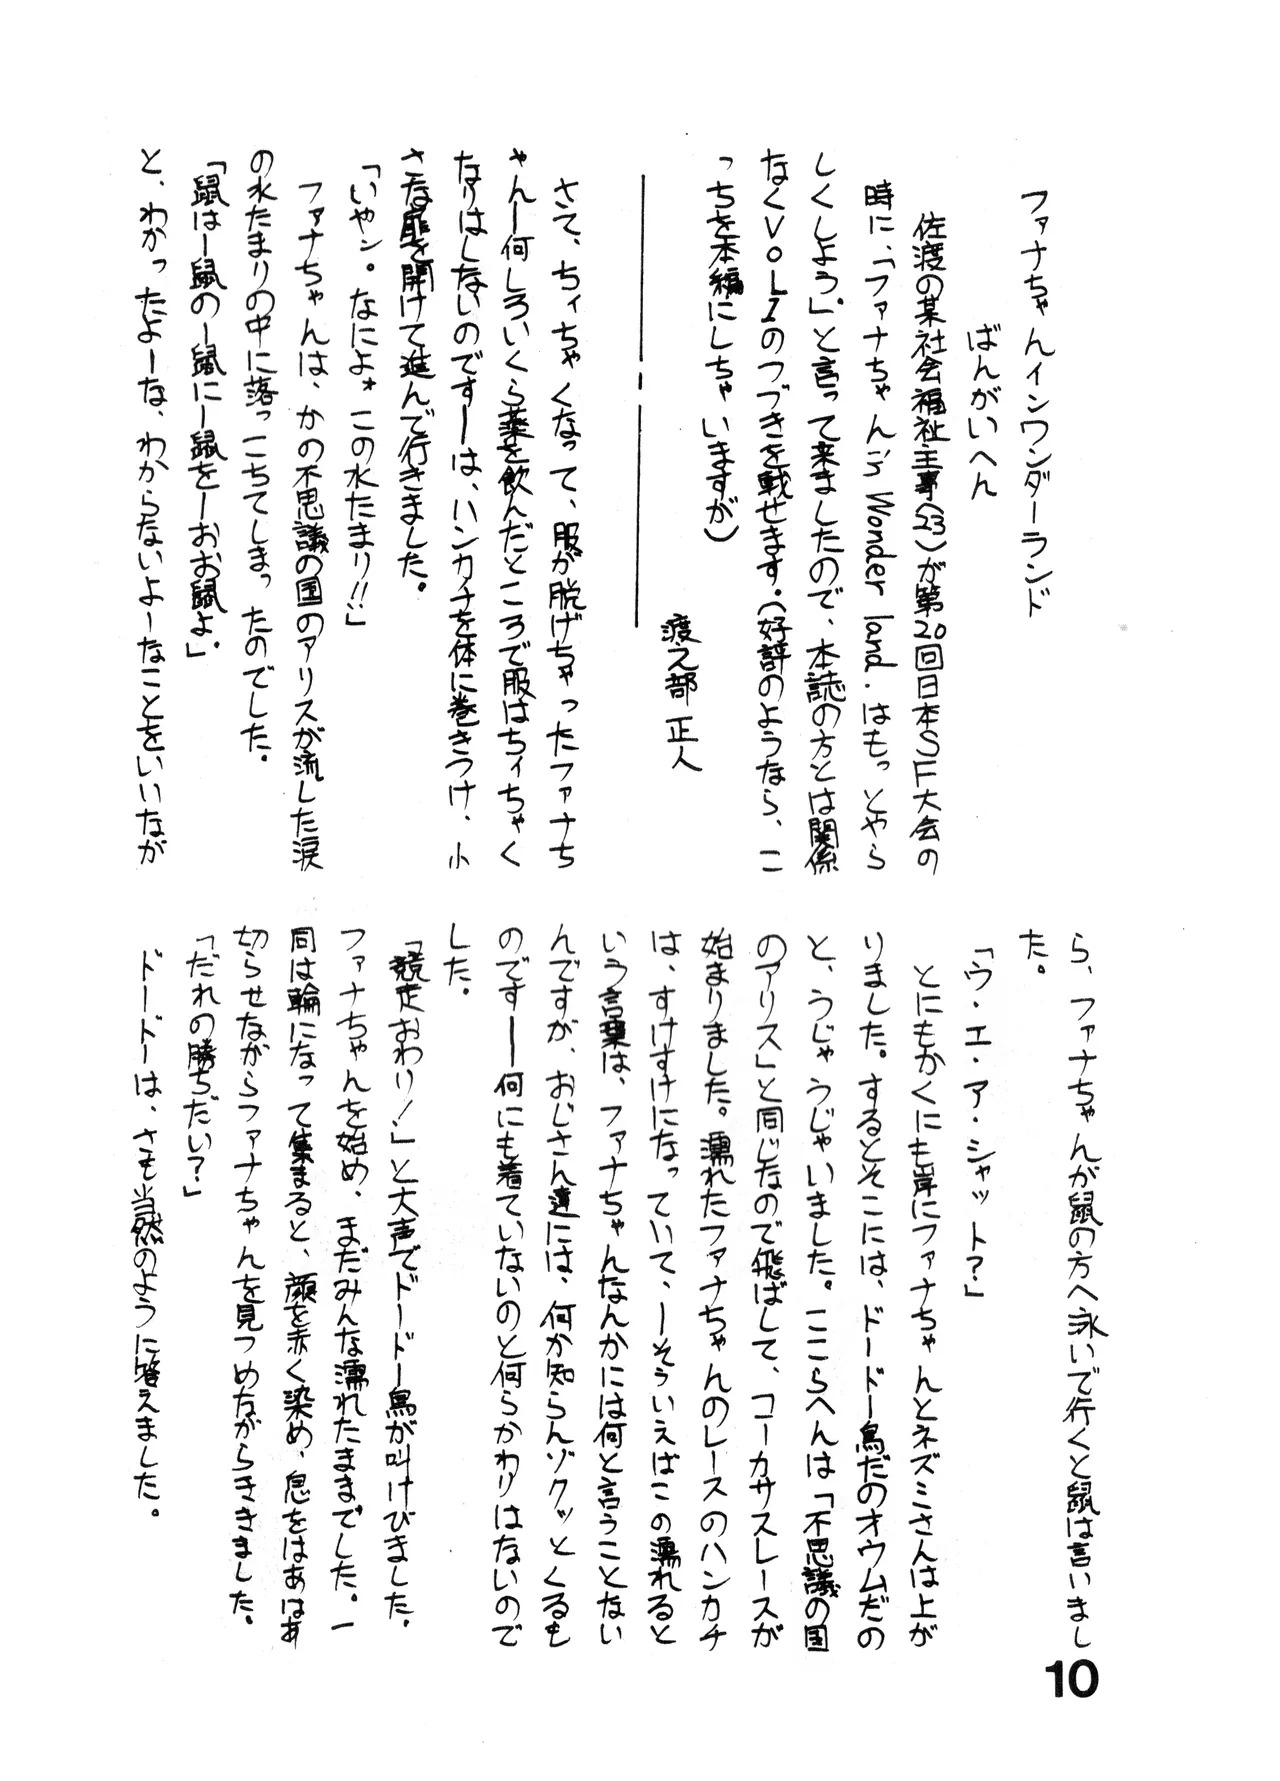 ファナちゃんインワンダーランド
ばんがいへん
佐渡の某社会福祉主事(23)が第20回日本SF大会の
時に、「ファナちゃんis Wonder land.はもっとやら
しくしよう」と言って来ましたので、本誌の方とは関係
なくVOL1のつづきを載せます。(好評のようなら、こ
っちを本編にしちゃいますが)
渡え部 正人
さて、ちィちゃくなって、服が脱げちゃったファナち
ゃんー何しろいくら薬を飲んだところで服はちィちゃく
なりはしないのですーは、ハンカチを体に巻きつけ、小
さな扉を開けて進んで行きました。
「いやン。なによォこの水たまり!!」
ファナちゃんは、かの不思議の国のアリスが流した涙
の水たまりの中に落っこちてしまったのでした。
「鼠はー鼠のー鼠にー鼠をーおお鼠よ。」
と、わかったよーな、わからないよーなことをいいなが
ら、ファナちゃんが鼠の方へ泳いで行くと鼠は言いまし
た。
「ウ・エ・ア・シャット?」
とにもかくにも岸にファナちゃんとネズミさんは上が
りました。するとそこには、ドードー鳥だのオウムだの
と、うじゃうじゃいました。ここらへんは「不思議の国
のアリス」と同じなので飛ばして、コーカサスレースが
始まりました。濡れたファナちゃんのレースのハンカチ
は、すけすけになっていて、ーそういえばこの濡れると
いう言葉は、ファナちゃんなんかには何と言うことない
んですが、おじさん達には、何か知らんゾクッとくるも
のですー何にも着ていないのと何らかわりはないので
した。
「競走おわり!」と大声でドードー鳥が叫けびました。
ファナちゃんを始め、まだみんな濡れたままでした。一
同は輪になって集まると、顔を赤く染め、息をはあはあ
切らせながらファナちゃんを見つめながらききました。
「だれの勝ちだい?」
ドードーは、さも当然のように答えました。
10